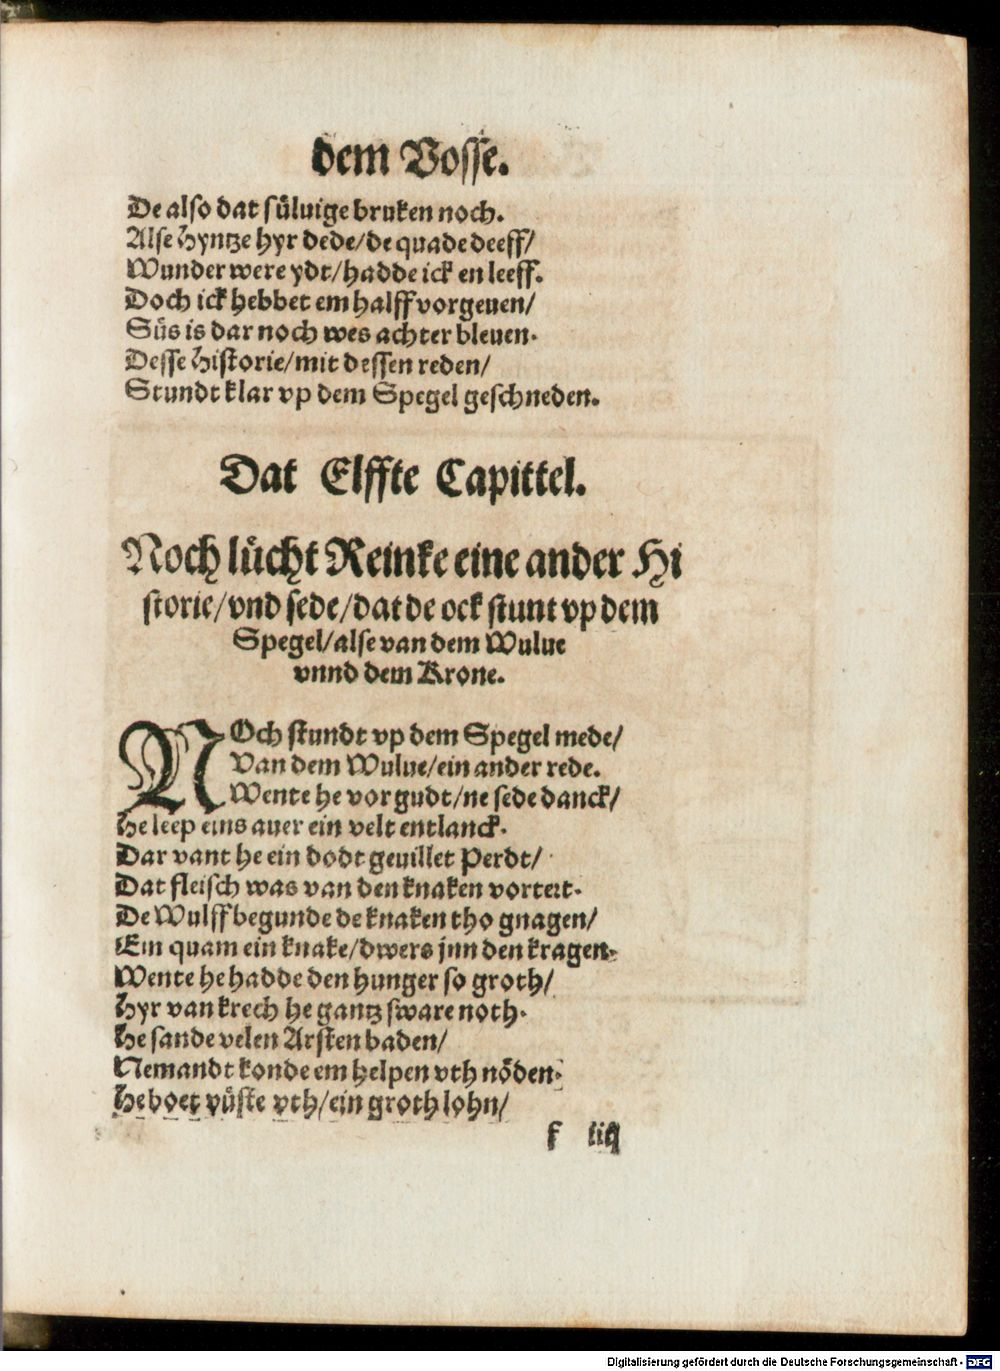 dem Vosse.
De also dat süluige bruken noch.
Alse Hyntze hyr dede/de quade deeff/
Wunder were ydt/hadde ick en leeff.
Doch ick hebbet em halff vorgeuen/
Süs is dar noch wes achter bleuen.
Desse Historie/mit dessen reden/
Stundt klar vp dem Spegel geschneden.
Dat Elffte Capittel.
Noch lücht Reinke eine ander Hi
storie/vnd sede/dat de ock stunt vp dem
Spegel/alse van dem Wulue
vnnd dem Krone.
NOch stundt vp dem Spegel mede/
Van dem Wulue/ein ander rede.
Wente he vor gudt/ne sede danck/
He leep eins auer ein velt entlanck.
Dar vant he ein dodt geuillet Perdt/
Dat fleisch was van den knaken vortert.
De Wulff begunde de knaken tho gnagen/
Em quam ein knake/dwers jnn den kragen.
Wente he hadde den hunger so groth/
Hyr van krech he gantz sware noth.
He sande velen Arsten baden/
Nemandt konde em helpen vth nöden.
He boet vüste vth/ein groth lohn/
f iiij
Digitalisierung gefördert durch die Deutsche Forschungsgemeinschaft - DFG